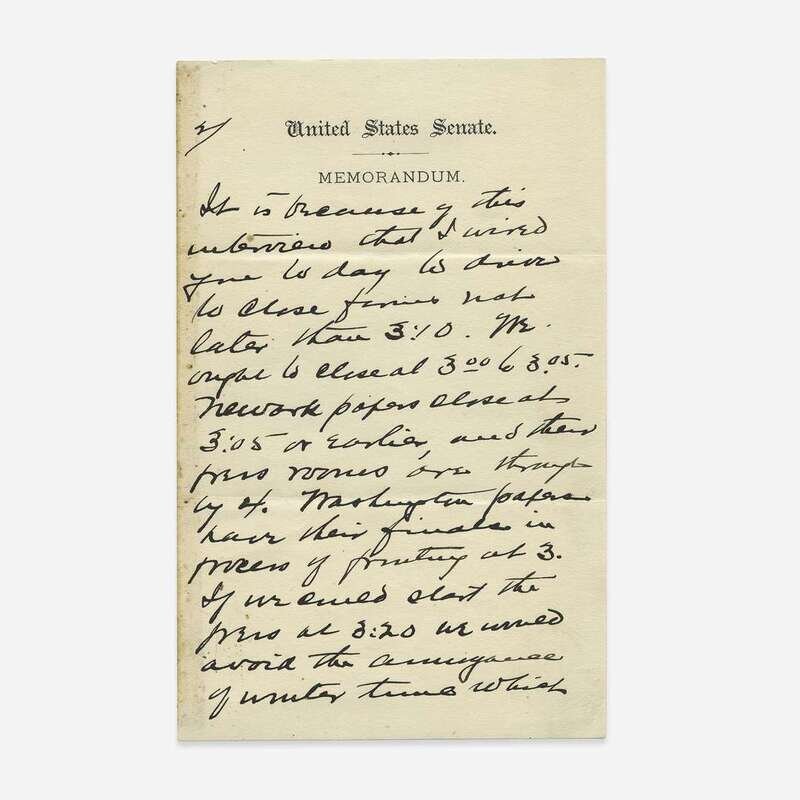 2/
United States Senate.
MEMORANDUM.
It is because of this
interview that I wired
you to day to drive
to close forms not
later than 3:10. We
ought to close at 3:00 to 3.05.
Newark papers close at
3:05 or earlier, and their
press rooms are through
by 4. Washington papers
have their finals in
process of printing at 3.
If we could start the
press at 3:20 we would
avoid the annoyance
of winter time which